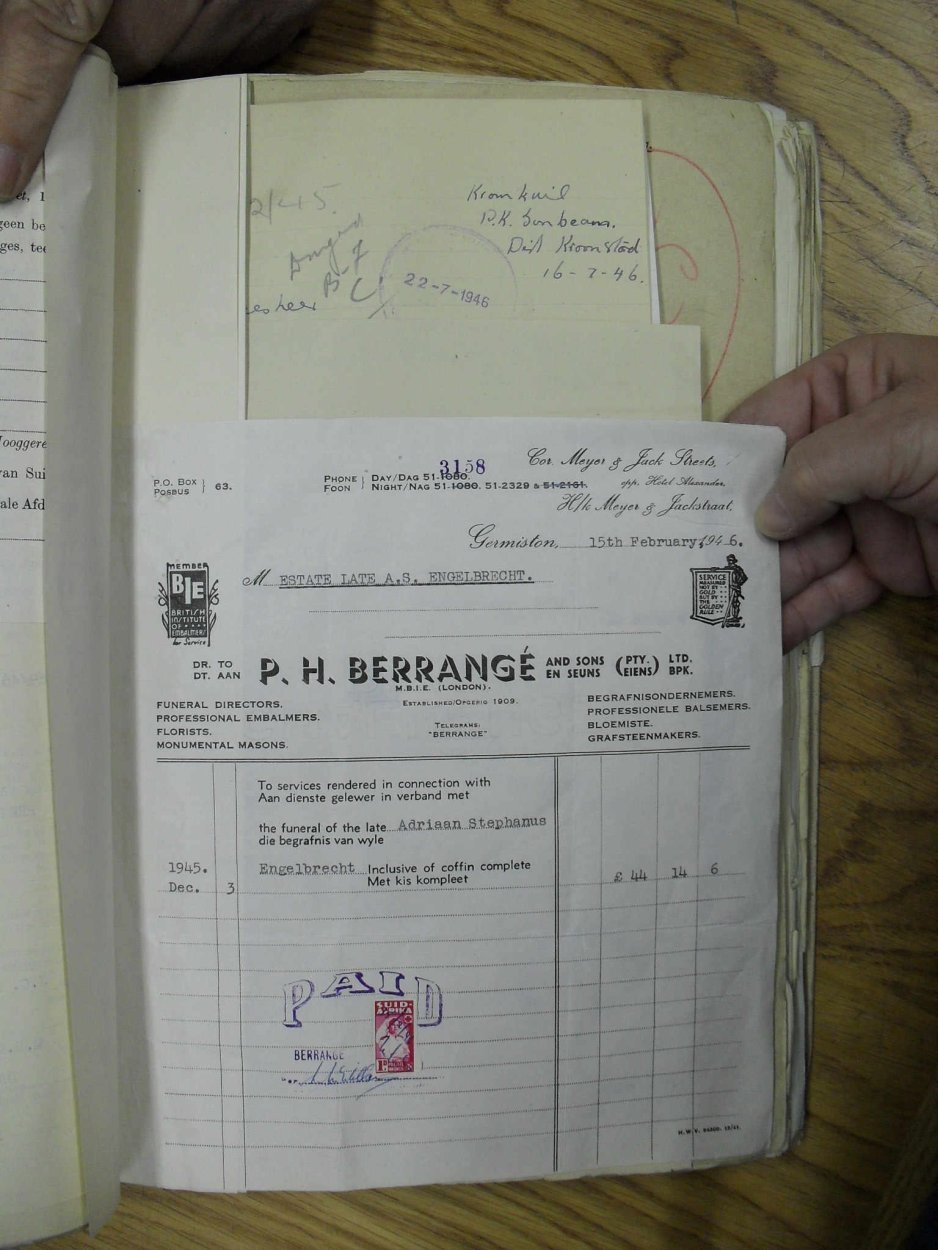 et, 1
geen be
ges, tee
Hooggere
van Sui
ale Afd
2/45.
B C
es heer
22-7-1946
Kromkuil
P.K. Sunbeam.
Dist Kroonstad
16-7-46.
P.O. BOX
POSBUS } 63.
3158
PHONE } DAY/DAG 51-1080.
FOON } NIGHT/NAG 51-1080, 51-2329 & 51-2161.
Cor. Meyer & Jack Streets,
opp. Hotel Alexander.
H/k Meyer & Jackstraat,
Germiston, 15th February, 1946.
MEMBER
BIE
BRITISH
INSTITUTE
OF
EMBALMERS
for Service
M ESTATE LATE A.S. ENGELBRECHT.
SERVICE
MEASURED
NOT BY
GOLD
BUT BY
THE
GOLDEN
RULE
DR. TO
DT. AAN
P. H. BERRANGÉ AND SONS (PTY.) LTD.
EN SEUNS (EIENS) BPK.
M.B.I.E. (LONDON).
ESTABLISHED/OPGERIG 1909.
TELEGRAMS:
"BERRANGE"
FUNERAL DIRECTORS.
PROFESSIONAL EMBALMERS.
FLORISTS.
MONUMENTAL MASONS.
BEGRAFNISONDERNEMERS.
PROFESSIONELE BALSEMERS.
BLOEMISTE.
GRAFSTEENMAKERS.
To services rendered in connection with
Aan dienste gelewer in verband met
the funeral of the late Adriaan Stephanus
die begrafnis van wyle
1945.
Dec. 3
Engelbrecht Inclusive of coffin complete
Met kis kompleet
£ 44 14 6
PAID
SUID-
AFRIKA
1D
BERRANGE